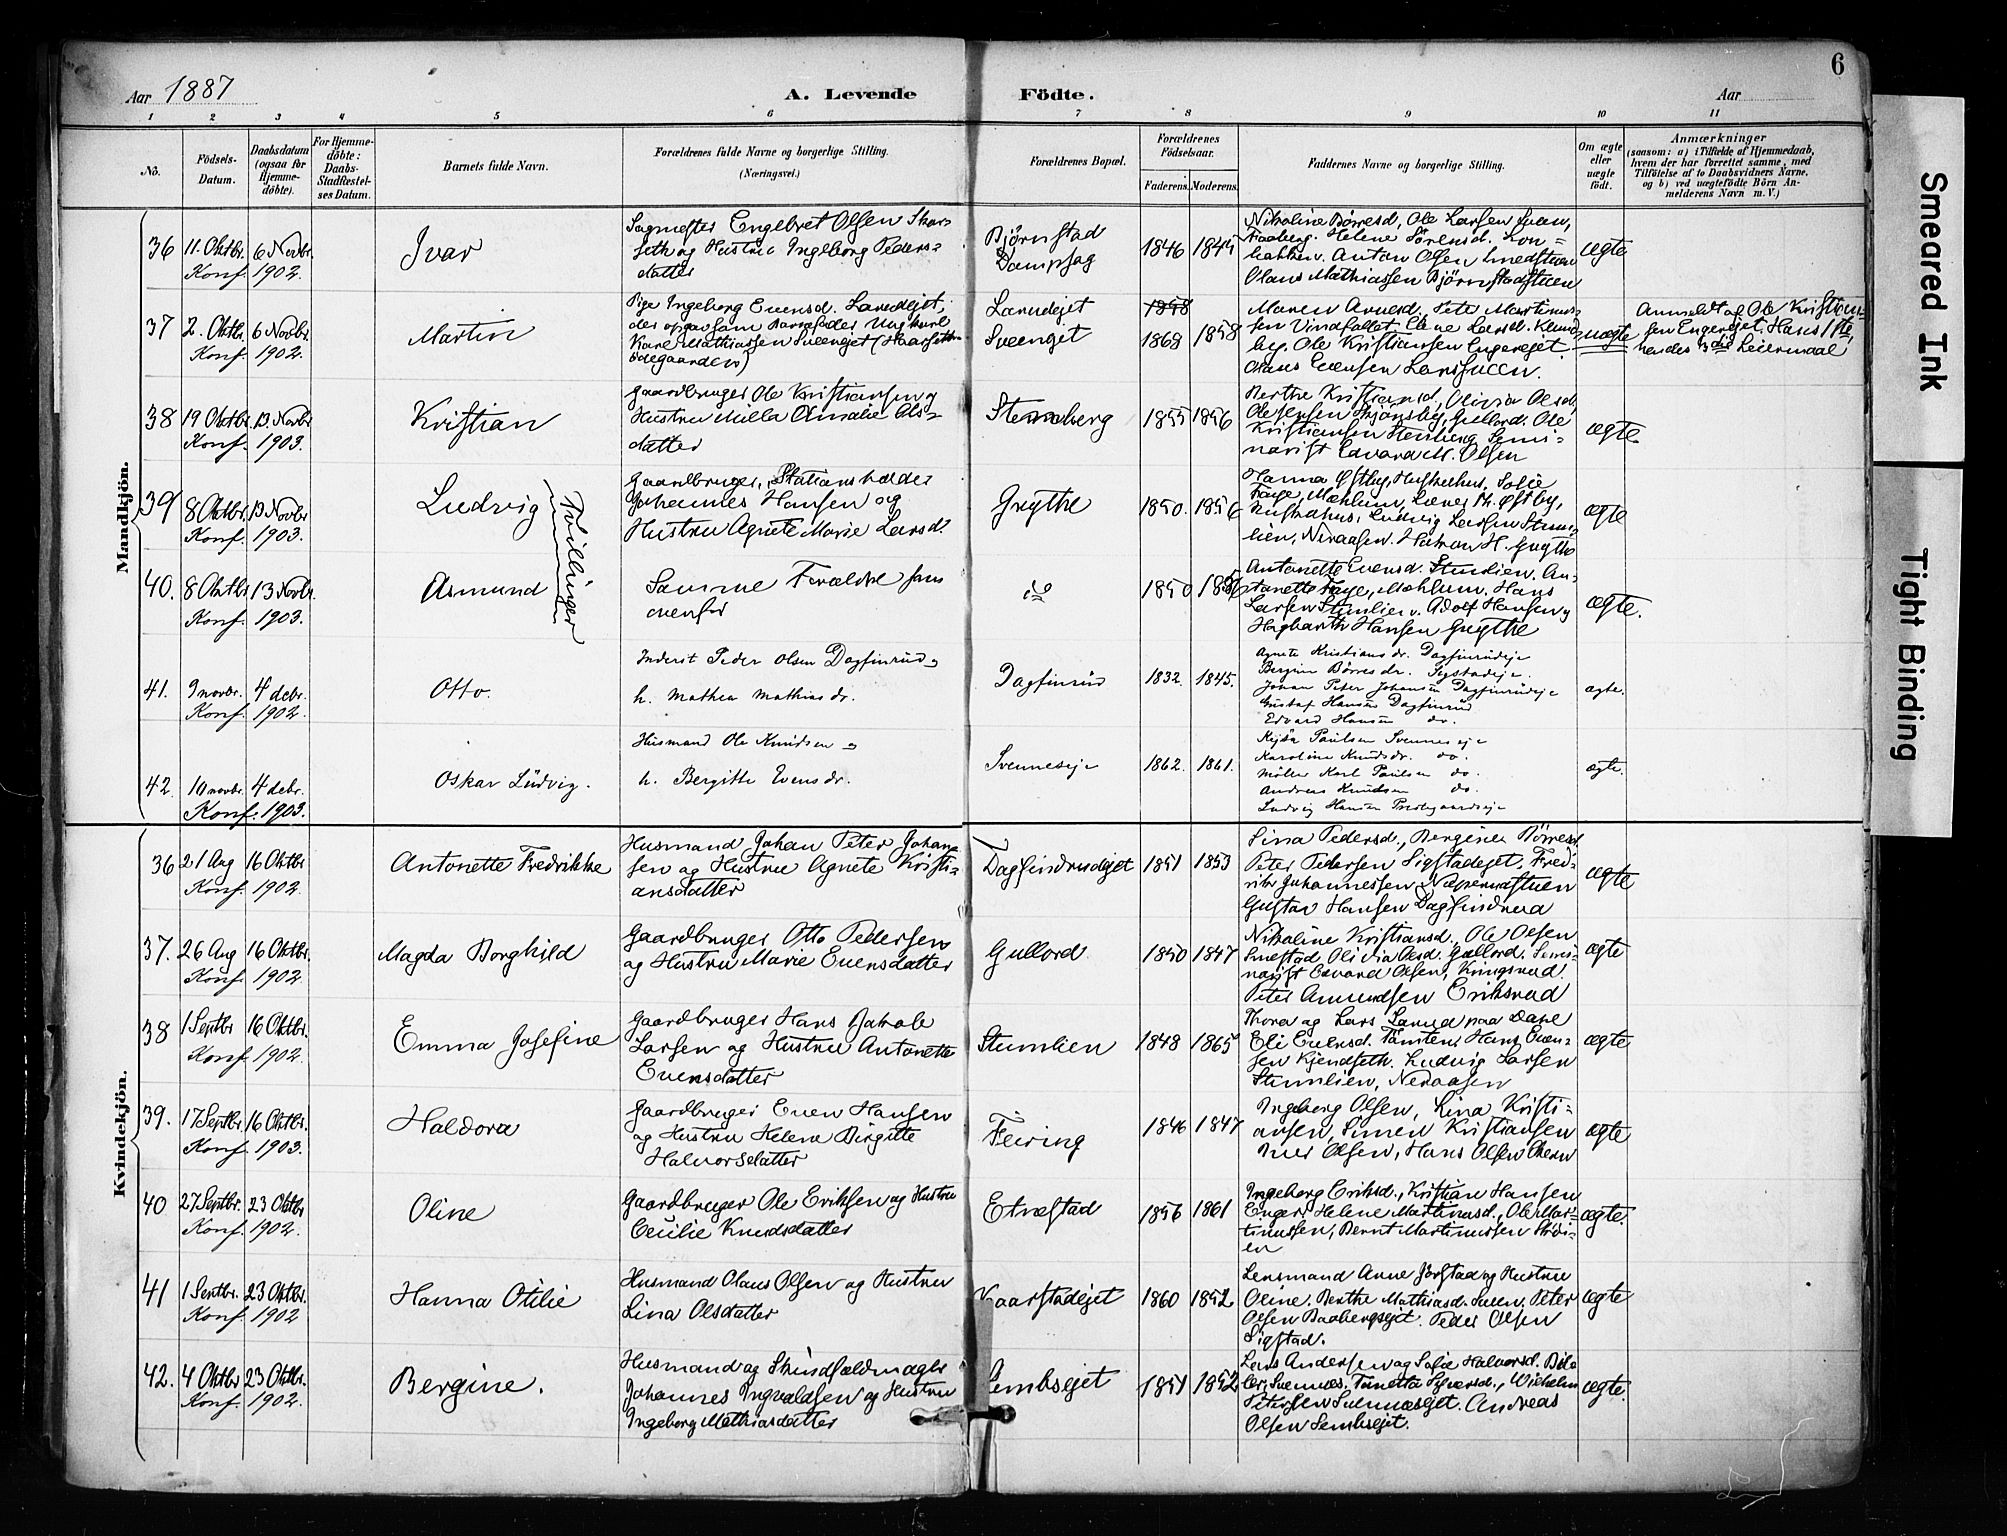 Aar 1887
A. Levende
Födte.
Aar
6
1 2 3 4 5 6 7 8 9 10 11
No.
Födsels-
Datum.
Daabsdatum
(ogsaa for
Hjemme-
döbte).
For Hjemme-
döbte:
Daabs-
Stadfæstel-
ses Datum.
Barnets fulde Navn.
Forældrenes fulde Navne og borgerlige Stilling.
(Næringsvei.)
Forældrenes Bopæl.
Forældrenes
Födselsaar.
Faderens. Moderens.
Faddernes Navne og borgerlige Stilling.
Om ægte
eller
uægte
födt.
Anmærkninger
(saasom: a) i Tilfælde af Hjemmedaab,
hvem der har forrettet samme, med
Tilföielse af to Daabsvidners Navne,
og b) ved uægtefödte Börn An-
melderens Navn m. V.)
Mandkjön.
36 11 Oktbr. 6 Novbr.
Konf. 1902.
Ivar
Engebret Olsen
og Hustru Ingeborg Peders-
datter
Bjørnstad
Dampsag
1846
Nikoline Børresd., Ole Larsen Sven,
Faaberg. Helene Sörensd.
Anton Olsen
Olaus Mathiassen Bjørnstadstuen
ægte
37 2. Oktbr. 6 Novbr
Konf. 1902.
Martin
Pige Ingeborg Evensd.
Karl Mathiassen
1858
1869 1858
Maren Arnesd., Peter Martinus-
sen Vindfallet,
Ole Kristiansen Engerejet.
uægte
Anmeldt af Ole Kristian-
sen Engerejet, Hans 1ste,
hendes 3die Leiermaal
38 19 Oktbr. 13 Novbr.
Konf. 1903.
Kristian
Gaardbruger Ole Kristiansen og
Hustru Milla Amalie Ols-
datter
Stensberg
1855 1856
Berthe Kristiansd., Olivia Olsd.
Ole Jensen Gullord. Ole
Kristiansen Stensberg. Semi-
narist Edvard M. Olsen
ægte
39 8 Oktbr. 13 Novbr.
Konf. 1903.
Ludvig
Tvillinger
Gaardbruger, Stationsholder
Johannes Hansen og
Hustru Agnete Marie Larsd.
Grythe
1850. 1856
Hanna Østby, Sofie
Faye, Mæhlum, Østby,
Ludvig Larsen Stum-
lien, Neraasen. H. Grythe
ægte
40. 8 Oktbr. 13 Novbr.
Konf. 1903.
Asmund
Samme Forældre som
ovenfor
do
1850 1856
Antonette Evensd. Stumlien. An-
tonette Faye, Mæhlum. Hans
Larsen Stumlien. Adolf Hansen og
Hagbarth Hansen Grythe
ægte.
41. 9 novbr. 4 debr.
Konf. 1902.
Otto.
Inderst Peder Olsen Dagfinrud og
h. Mathea Mathiasdr.
Dagfinrud
1832. 1845.
Agnete Kristiansdr. Dagfinrudeje
Bergine Börresdr. Sigstadeje.
Johan Peter Johansen Dagfinrudeje
Gustaf Hansen Dagfinrud
Edvard Hansen do.
ægte.
42. 10 novbr. 4 debr.
Konf. 1903.
Oskar Ludvig.
Husmand Ole Knudsen og
h. Bergitte Evensdr.
Svenneseje
1862. 1861.
Kajsa Paulsen Svenneseje
Karoline Knudsdr. do.
Möller Karl Paulsen do.
Andreas Knudsen do.
Ludvig Hansen Prestegaardseje
ægte.
Kvindekjön.
36 21 Aug 16 Oktbr
Konf. 1902.
Antonette Fredrikke
Husmand Johan Peter Johan-
sen og Hustru Agnete Kristi-
ansdatter
Dagfindrudejet
1851 1853
Lina Pedersd., Bergine Börresd.
Peter Pedersen Sigstadejet. Fred-
rik Johannessen
Gustav Hansen Dagfindrud
ægte
37. 26 Aug 16 Oktbr
Konf. 1902.
Magda Borghild
Gaardbruger Otto Pedersen
og Hustru Marie Evensdatter
Gullord
1850 1847
Nikoline Kristiansd., Ole Olsen
Smestad. Olivia Olsd. Gullord. Semi-
narist Edvard Olsen, Kringsrud.
Peter Amundsen Eriksrud
ægte
38 1 Septbr 16 Oktbr.
Konf. 1902.
Emma Josefine
Gaardbruger Hans Jakob
Larsen og Hustru Antonette
Evensdatter
Stumlien
1848 1865
Thora og Lars
Eli Evensd. Hans Even-
sen Kjendseth. Ludvig Larsen
Stumlien, Neraasen
ægte
39. 17 Septbr. 16 Oktbr.
Konf. 1903.
Haldora
Gaardbruger Even Hansen
og Hustru Helene Birgitte
Halvorsdatter
Feiring
1846 1847
Ingeborg Olsen, Lina Kristi-
ansen, Simen Kristiansen
Iver Olsen, Hans Olsen
ægte
40 27 Septbr. 23 Oktbr
Konf. 1902.
Oline
Gaardbruger Ole Eriksen og Hustru
Cecilie Knudsdatter
Evestad
1856 1861
Ingeborg Eriksd., Kristian Hansen
Enger, Helene Martinusd., Ole Mar-
tinussen, Bernt Martinussen
ægte.
41 1 Septbr. 23 Oktbr.
Konf. 1902
Hanna Otilie
Husmand Olaus Olsen og Hustru
Lina Olsdatter
Kaarstadejet
1860 1852
Lensmand Arne Jørstad og Hustru
Oline. Berthe Mathiasd. Sveen. Peter
Olsen Baabergsejet. Peder Olsen
Sigstad.
ægte
42. 4 Oktbr 23 Oktbr.
Konf. 1902.
Bergine.
Husmand og Skindfældmager
Johannes Ingvaldsen og Hustru
Ingeborg Mathiasdatter
Sembsejet
1851 1852
Lars Andersen og Sofie Halvorsd.
Svennæs, Tonetta Syversd., Wilhelm
Petersen Svennæsejet. Andreas
Olsen Sembsejet.
ægte.
Smeared Ink
Tight Binding